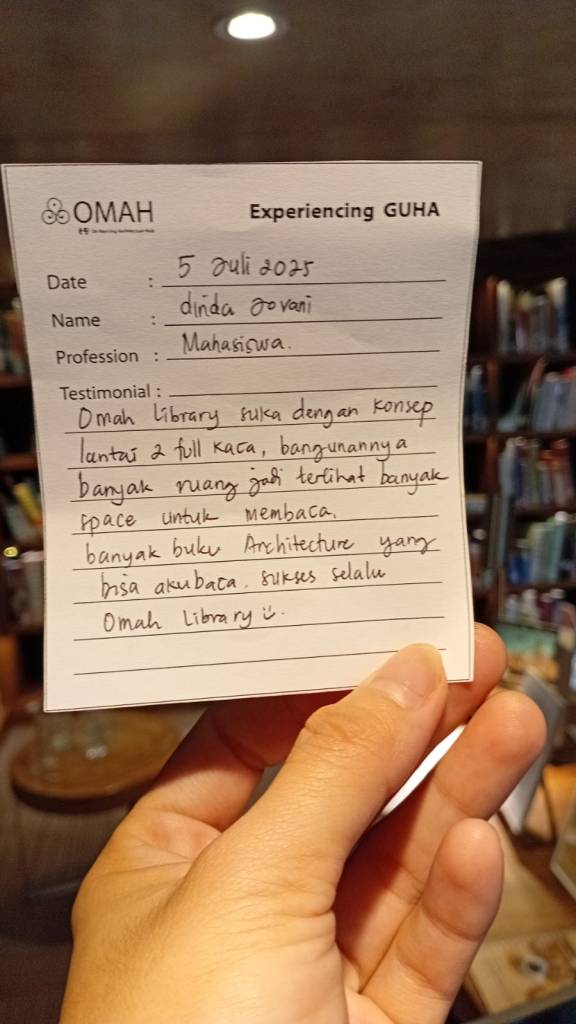 OMAH
Experiencing GUHA
Date : 5 Juli 2025
Name : dinda Jovani
Profession : Mahasiswa.
Testimonial :
Omah Library suka dengan konsep
lantai 2 full kaca, bangunannya
banyak ruang jadi terlihat banyak
space untuk membaca.
banyak buku Architecture yang
bisa aku baca. sukses selalu
Omah Library